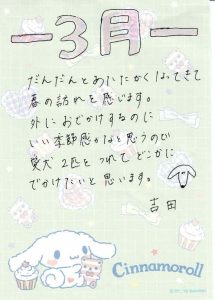 3月
だんだんとあたたかくなってきて
春の訪れを感じます。
外におでかけするのに
いい季節感かなと思うので
愛犬2匹をつれてどこかに
でかけたいと思います。
吉田
Cinnamoroll